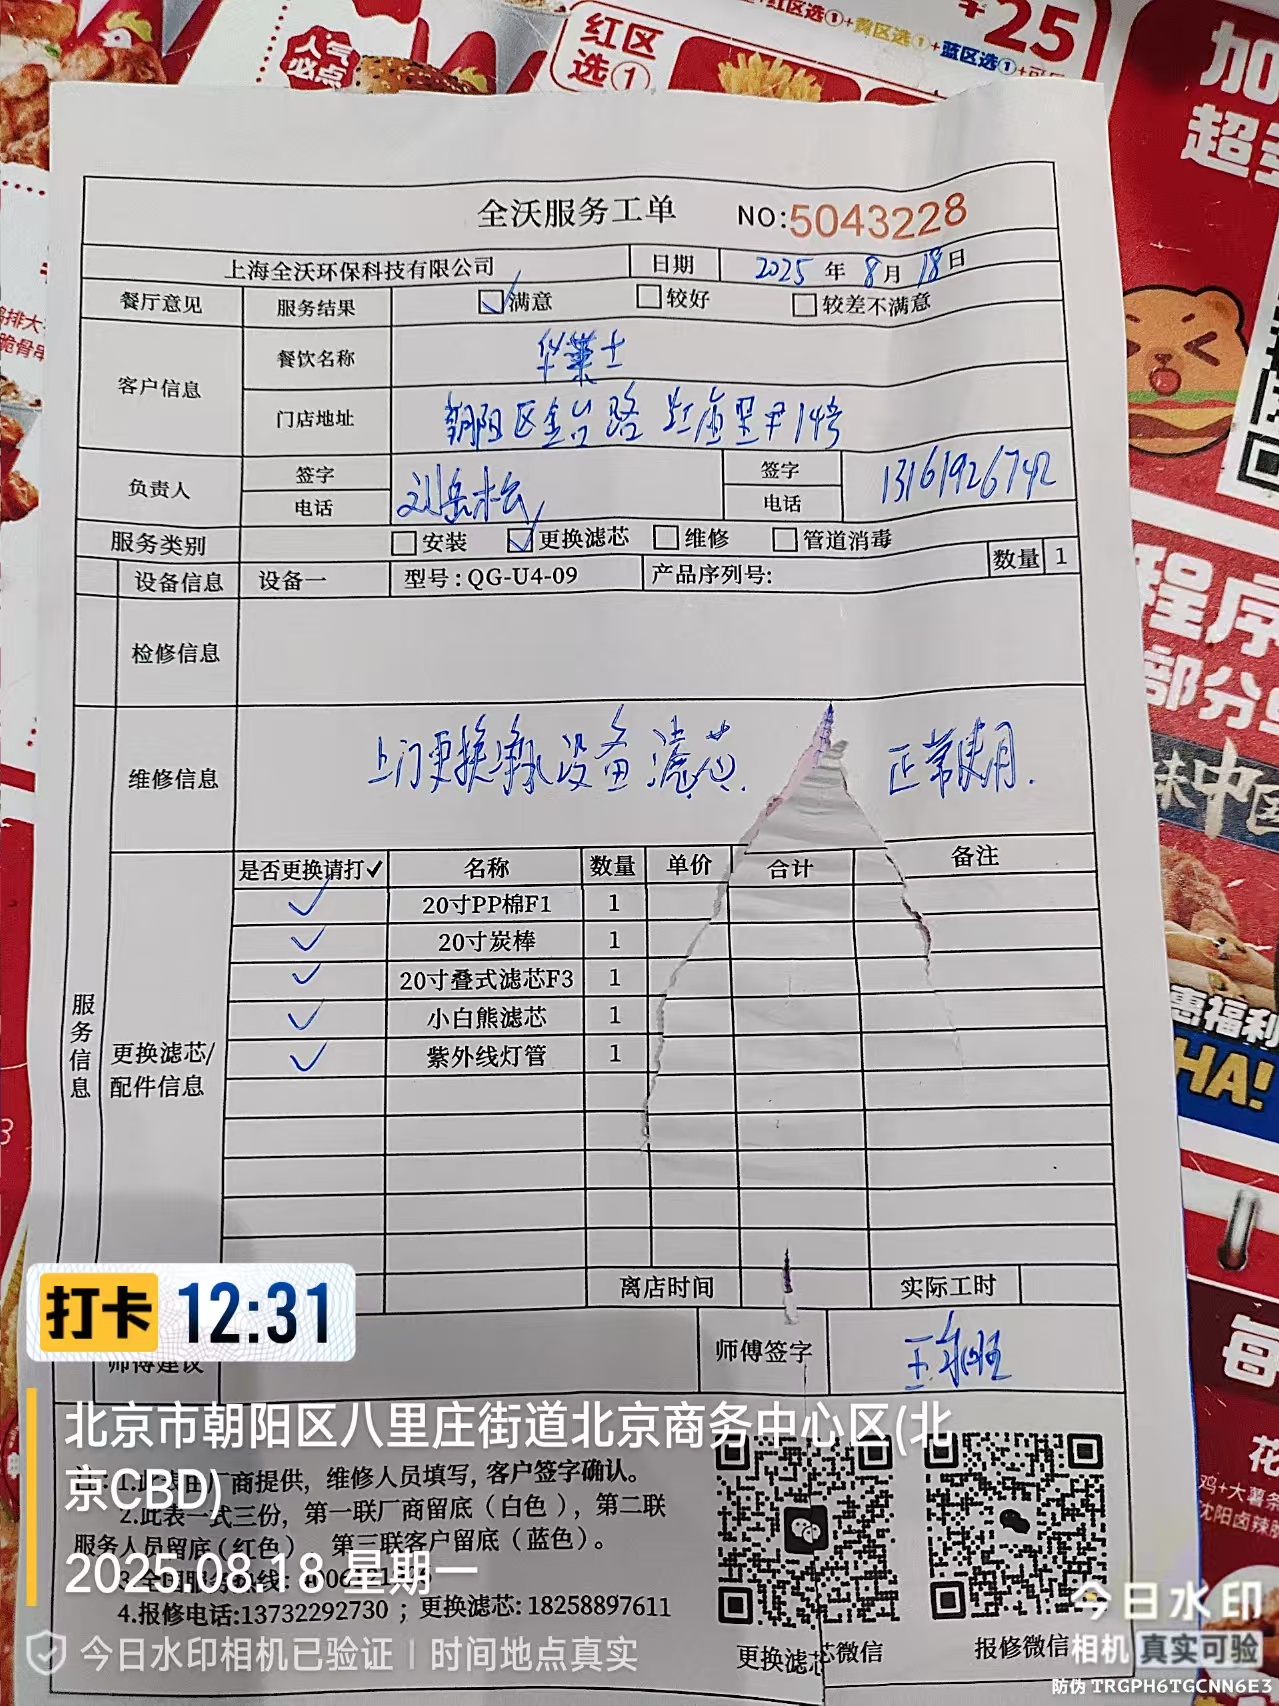 人气
必点
红区
选①
+红区选①+黄区选①
+蓝区选①+
¥25
加
超
全沃服务工单 NO:5043228
上海全沃环保科技有限公司 日期 2025年8月18日
餐厅意见 服务结果 满意 较好 较差不满意
客户信息 餐饮名称 华莱士
门店地址 朝阳区金台路 红庙里甲14号
负责人 签字 刘岳松 签字 13161926742
电话 电话
服务类别 安装 更换滤芯 维修 管道消毒
设备信息 设备一 型号:QG-U4-09 产品序列号: 数量 1
检修信息
维修信息 上门更换净水设备滤芯. 正常使用.
服务信息
更换滤芯/
配件信息
是否更换请打✓ 名称 数量 单价 合计 备注
✓ 20寸PP棉F1 1
✓ 20寸炭棒 1
✓ 20寸叠式滤芯F3 1
✓ 小白熊滤芯 1
✓ 紫外线灯管 1
离店时间 实际工时
师傅建议 师傅签字
打卡 12:31
北京市朝阳区八里庄街道北京商务中心区(北
京CBD)
2025.08.18 星期一
厂商提供，维修人员填写，客户签字确认。
2.此表一式三份，第一联厂商留底（白色），第二联
服务人员留底(红色) 第三联客户留底（蓝色）。
4.报修电话:13732292730；更换滤芯:18258897611
更换滤芯微信 报修微信
今日水印相机已验证 时间地点真实
今日水印
相机 真实可验
防伪 TRGPH6TGCNN6E3
程序
部分
味中国
惠福利
HA!
每
鸡+大薯条